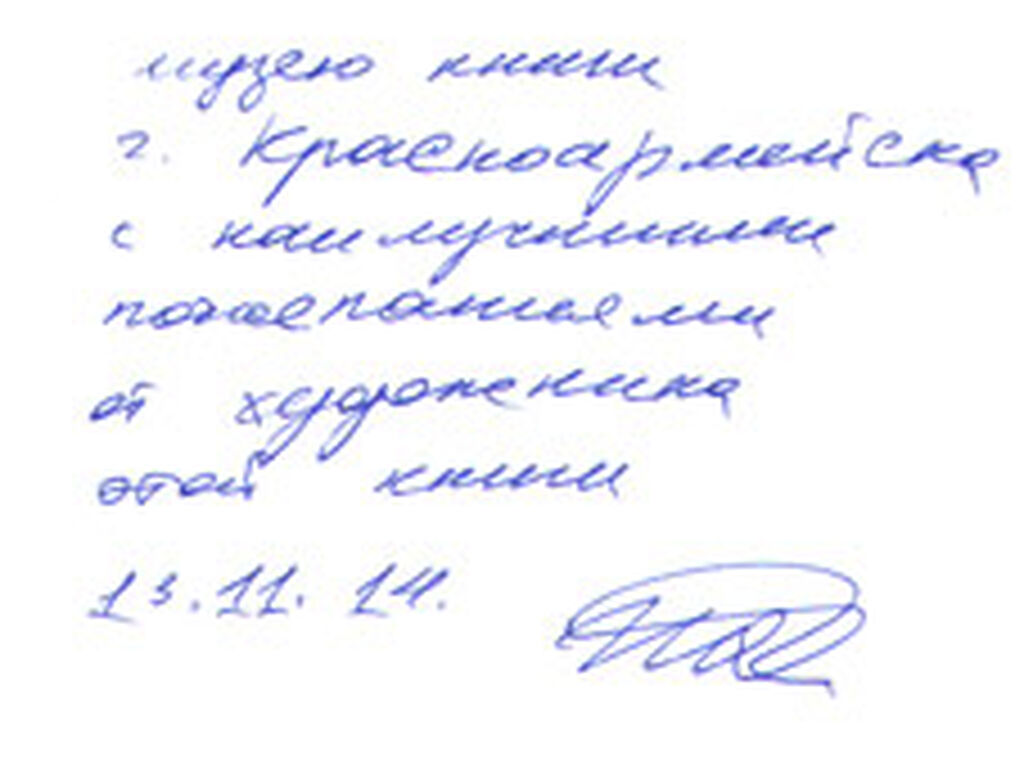 музею книги
г. Красноармейска
с наилучшими
пожеланиями
от художника
этой книги
13.11.14.